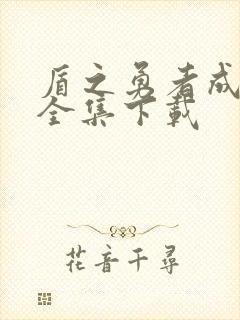 盾之勇者成
全集下载
花音千尋